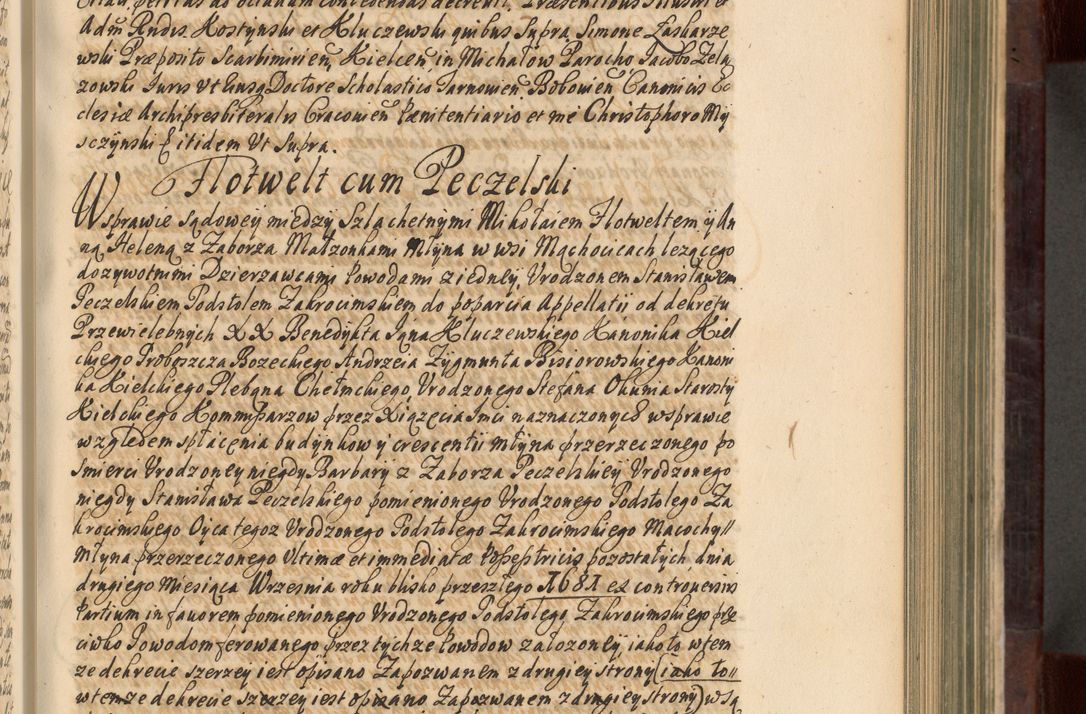 Adm Rndis. Kostynski et Kluczewski quibus Supra, Simone Zaskarze
wski Præposito Scarbimirien, Kielcen, in Michałow Parocho Jacobo Zela
zowski Juris Vt Eiusq Doctore Scholastico Tarnovien Bobovien Canonicis Ec
clesiæ Archipresbiteralis Cracovien Pænitentiario et me Christophoro My
sczynski C itidem Vt Supra.
Flotwelt cum Peczelski
W sprawie sądowey między Szlachetnymi Mikołaiem Flotweltem y An
ną Heleną z Zaborza Małzonkami Młyna w wsi Mąchocicach lezącego
dozywotnimi Dzierzawcami Powodami z iedney, Vrodzonem Stanisławem
Peczelskiem Podstolem Zakrocimskiem do poparcia Appellatii od dekretu
Przewielebnych XX Benedykta Kluczewskiego Kanonika Kiel
ckiego Proboszcza Bozeckiego Andrzeia Zygmunta Bisiorowskiego Kanoni
ka Kielckiego Plebana Chełmckiego Vrodzonego Stefana Okunia Starosty
Kielckiego Kommissarzow przez Xiązęcia Jmci naznaczonych w sprawie
względem spłacenia budynkow y crescentii młyna przerzeczonego po
smierci Vrodzoney niegdy Barbary z Zaborza Peczelskiey Vrodzonego
niegdy Stanisława Peczelskiego pomienionego Vrodzonego Podstolego Za
krocimskiego Oyca tegoz Vrodzonego Podstolego Zakrocimskiego Macochy //
Młyna przerzeczonego Vltimæ et immediatæ Possestricis pozostałych dnia
drugiego Miesiąca Wrzesnia roku blisko przeszłego 1681 ex controversiis
Partium in favorem pomienionego Vrodzonego Podstolego Zakrocimskiego prze
ciwko Powodom ferowanego przez tychze Powodow załozoney iako to w tem
ze dekrecie szerzey iest opisano Zapozwanem z drugiey strony (iako to //
w temze dekrecie szerzey iest opisano Zapozwanem z drugiey strony) w są